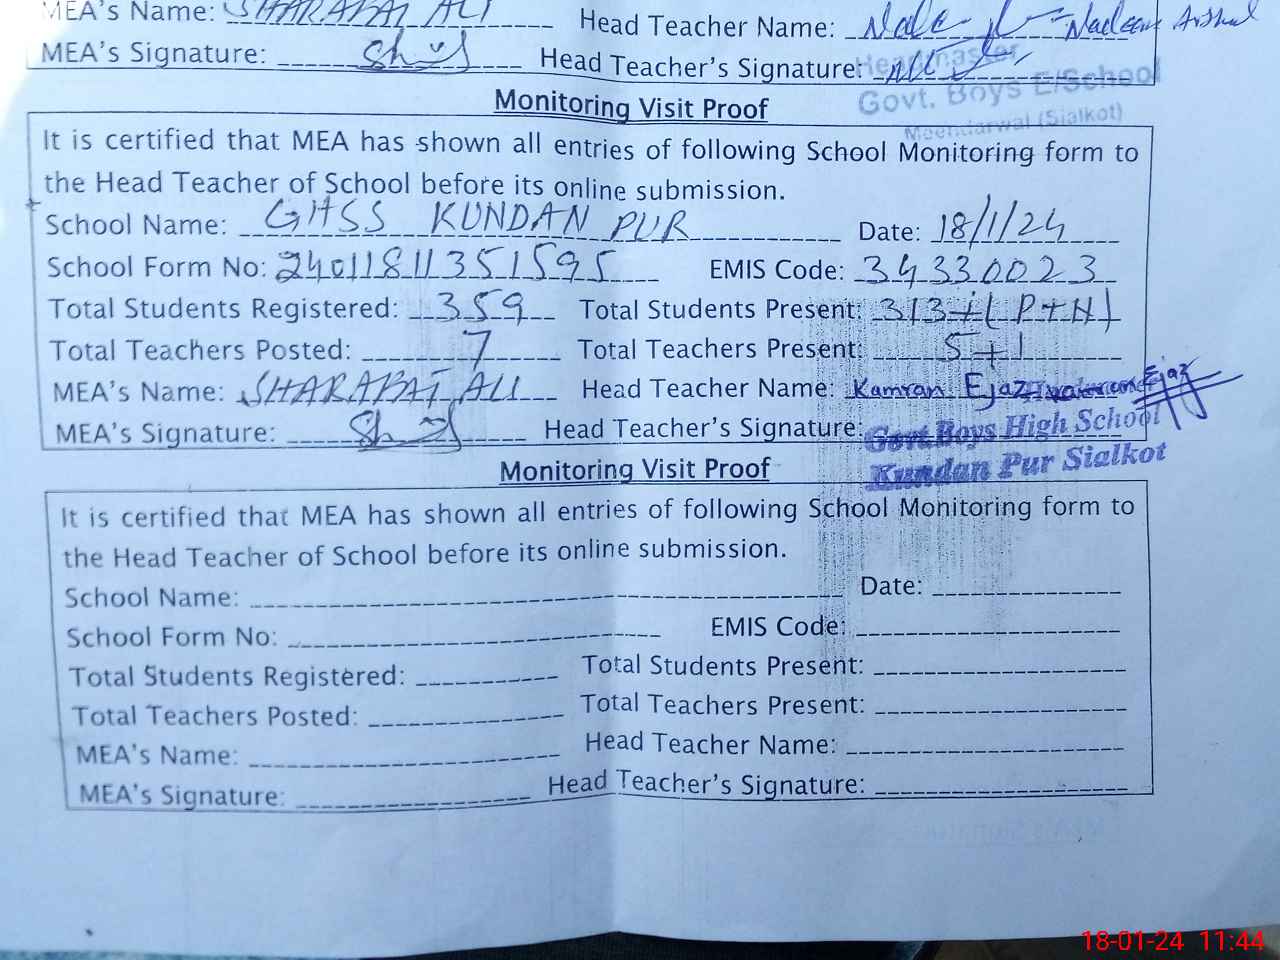 MEA's Name: SHARAFAT ALI Head Teacher Name: Nadeem Arshad
MEA's Signature: Head Teacher's Signature:
Headmaster
Govt. Boys E/School
Meendarwal (Sialkot)
Monitoring Visit Proof
It is certified that MEA has shown all entries of following School Monitoring form to
the Head Teacher of School before its online submission.
School Name: GHSS KUNDAN PUR Date: 18/1/24
School Form No: 24011811351595 EMIS Code: 34330023
Total Students Registered: 359 Total Students Present: 313+(P+N)
Total Teachers Posted: 7 Total Teachers Present: 5+1
MEA's Name: SHARAFAT ALI Head Teacher Name: Kamran Ejaz
MEA's Signature: Head Teacher's Signature:
Govt Boys High School
Kundan Pur Sialkot
Monitoring Visit Proof
It is certified that MEA has shown all entries of following School Monitoring form to
the Head Teacher of School before its online submission.
School Name: Date:
School Form No: EMIS Code:
Total Students Registered: Total Students Present:
Total Teachers Posted: Total Teachers Present:
MEA's Name: Head Teacher Name:
MEA's Signature: Head Teacher's Signature:
18-01-24 11:44